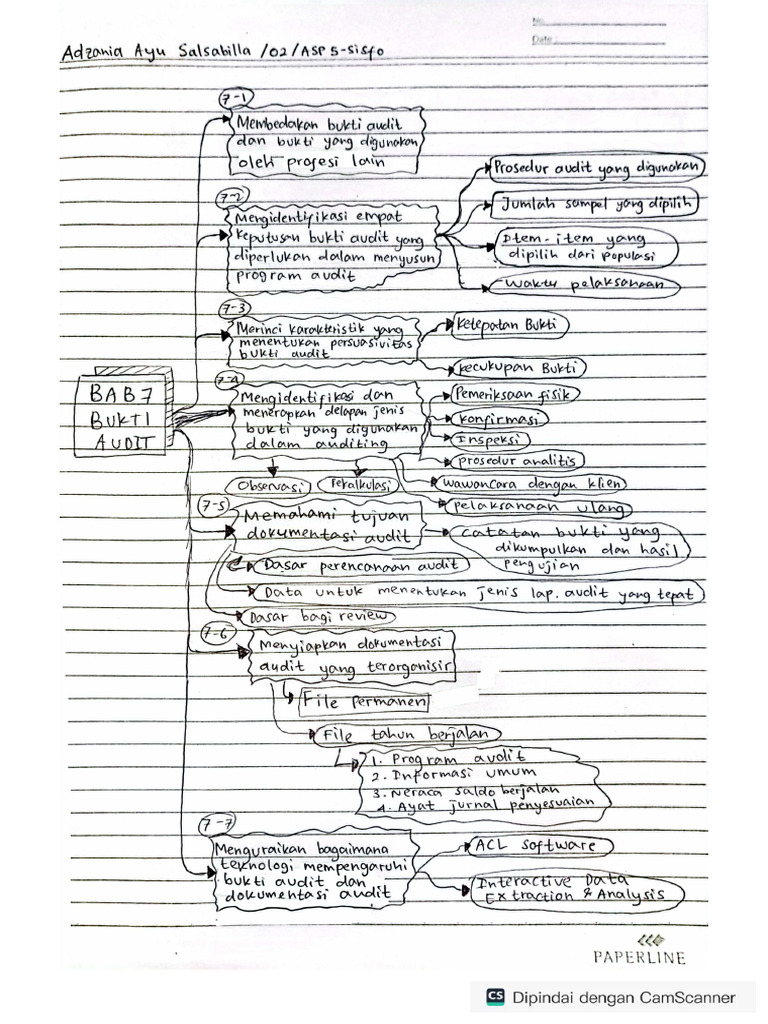 No.
Date :
Adzania Ayu Salsabilla /02/ASP 5-Sisfo
7-1
Membedakan bukti audit
dan bukti yang digunakan
oleh profesi lain
7-2
Mengidentifikasi empat
keputusan bukti audit yang
diperlukan dalam menyusun
program audit
Prosedur audit yang digunakan
Jumlah sampel yang dipilih
Item-item yang
dipilih dari populasi
Waktu pelaksanaan
7-3
Merinci karakteristik yang
menentukan persuasivitas
bukti audit
Ketepatan Bukti
Kecukupan Bukti
BAB 7
BUKTI
AUDIT
7-4
Mengidentifikasi dan
menerapkan delapan jenis
bukti yang digunakan
dalam auditing
Pemeriksaan fisik
Konfirmasi
Inspeksi
prosedur analitis
wawancara dengan klien
pelaksanaan ulang
Observasi
Rekalkulasi
7-5
Memahami tujuan
dokumentasi audit
catatan bukti yang
dikumpulkan dan hasil
pengujian
Dasar perencanaan audit
Data untuk menentukan jenis lap. audit yang tepat
Dasar bagi review
7-6
Menyiapkan dokumentasi
audit yang terorganisir
File Permanen
File tahun berjalan
1. Program audit
2. Informasi umum
3. Neraca saldo berjalan
4. Ayat jurnal penyesuaian
7-7
Menguraikan bagaimana
teknologi mempengaruhi
bukti audit dan
dokumentasi audit
ACL Software
Interactive Data
Extraction & Analysis
PAPERLINE
CS Dipindai dengan CamScanner